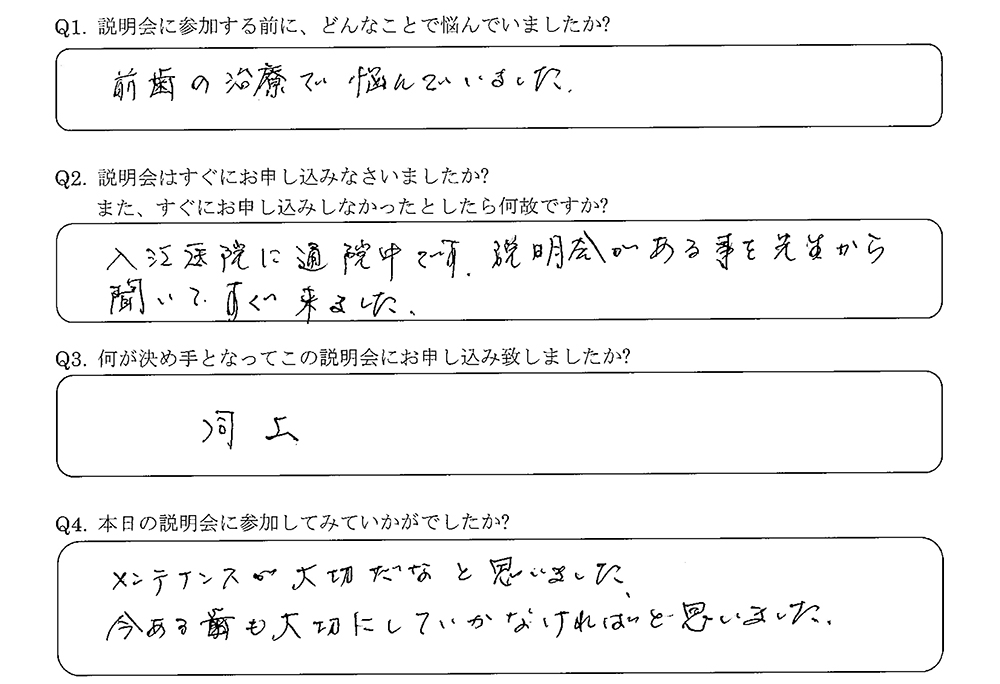 Q1. 説明会に参加する前に、どんなことで悩んでいましたか?
前歯の治療で悩んでいました.
Q2. 説明会はすぐにお申し込みなさいましたか?
また、すぐにお申し込みしなかったとしたら何故ですか?
入江医院に通院中です. 説明会がある事を先生から
聞いてすぐ来ました.
Q3. 何が決め手となってこの説明会にお申し込み致しましたか?
同上
Q4. 本日の説明会に参加してみていかがでしたか?
メンテナンスが大切だなと思いました.
今ある歯も大切にしていかなければと思いました.